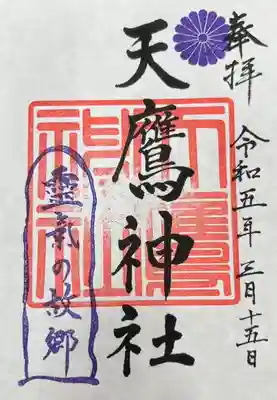 奉拝
令和五年三月十五日
天鷹神社
天鷹神社
霊氣の故郷